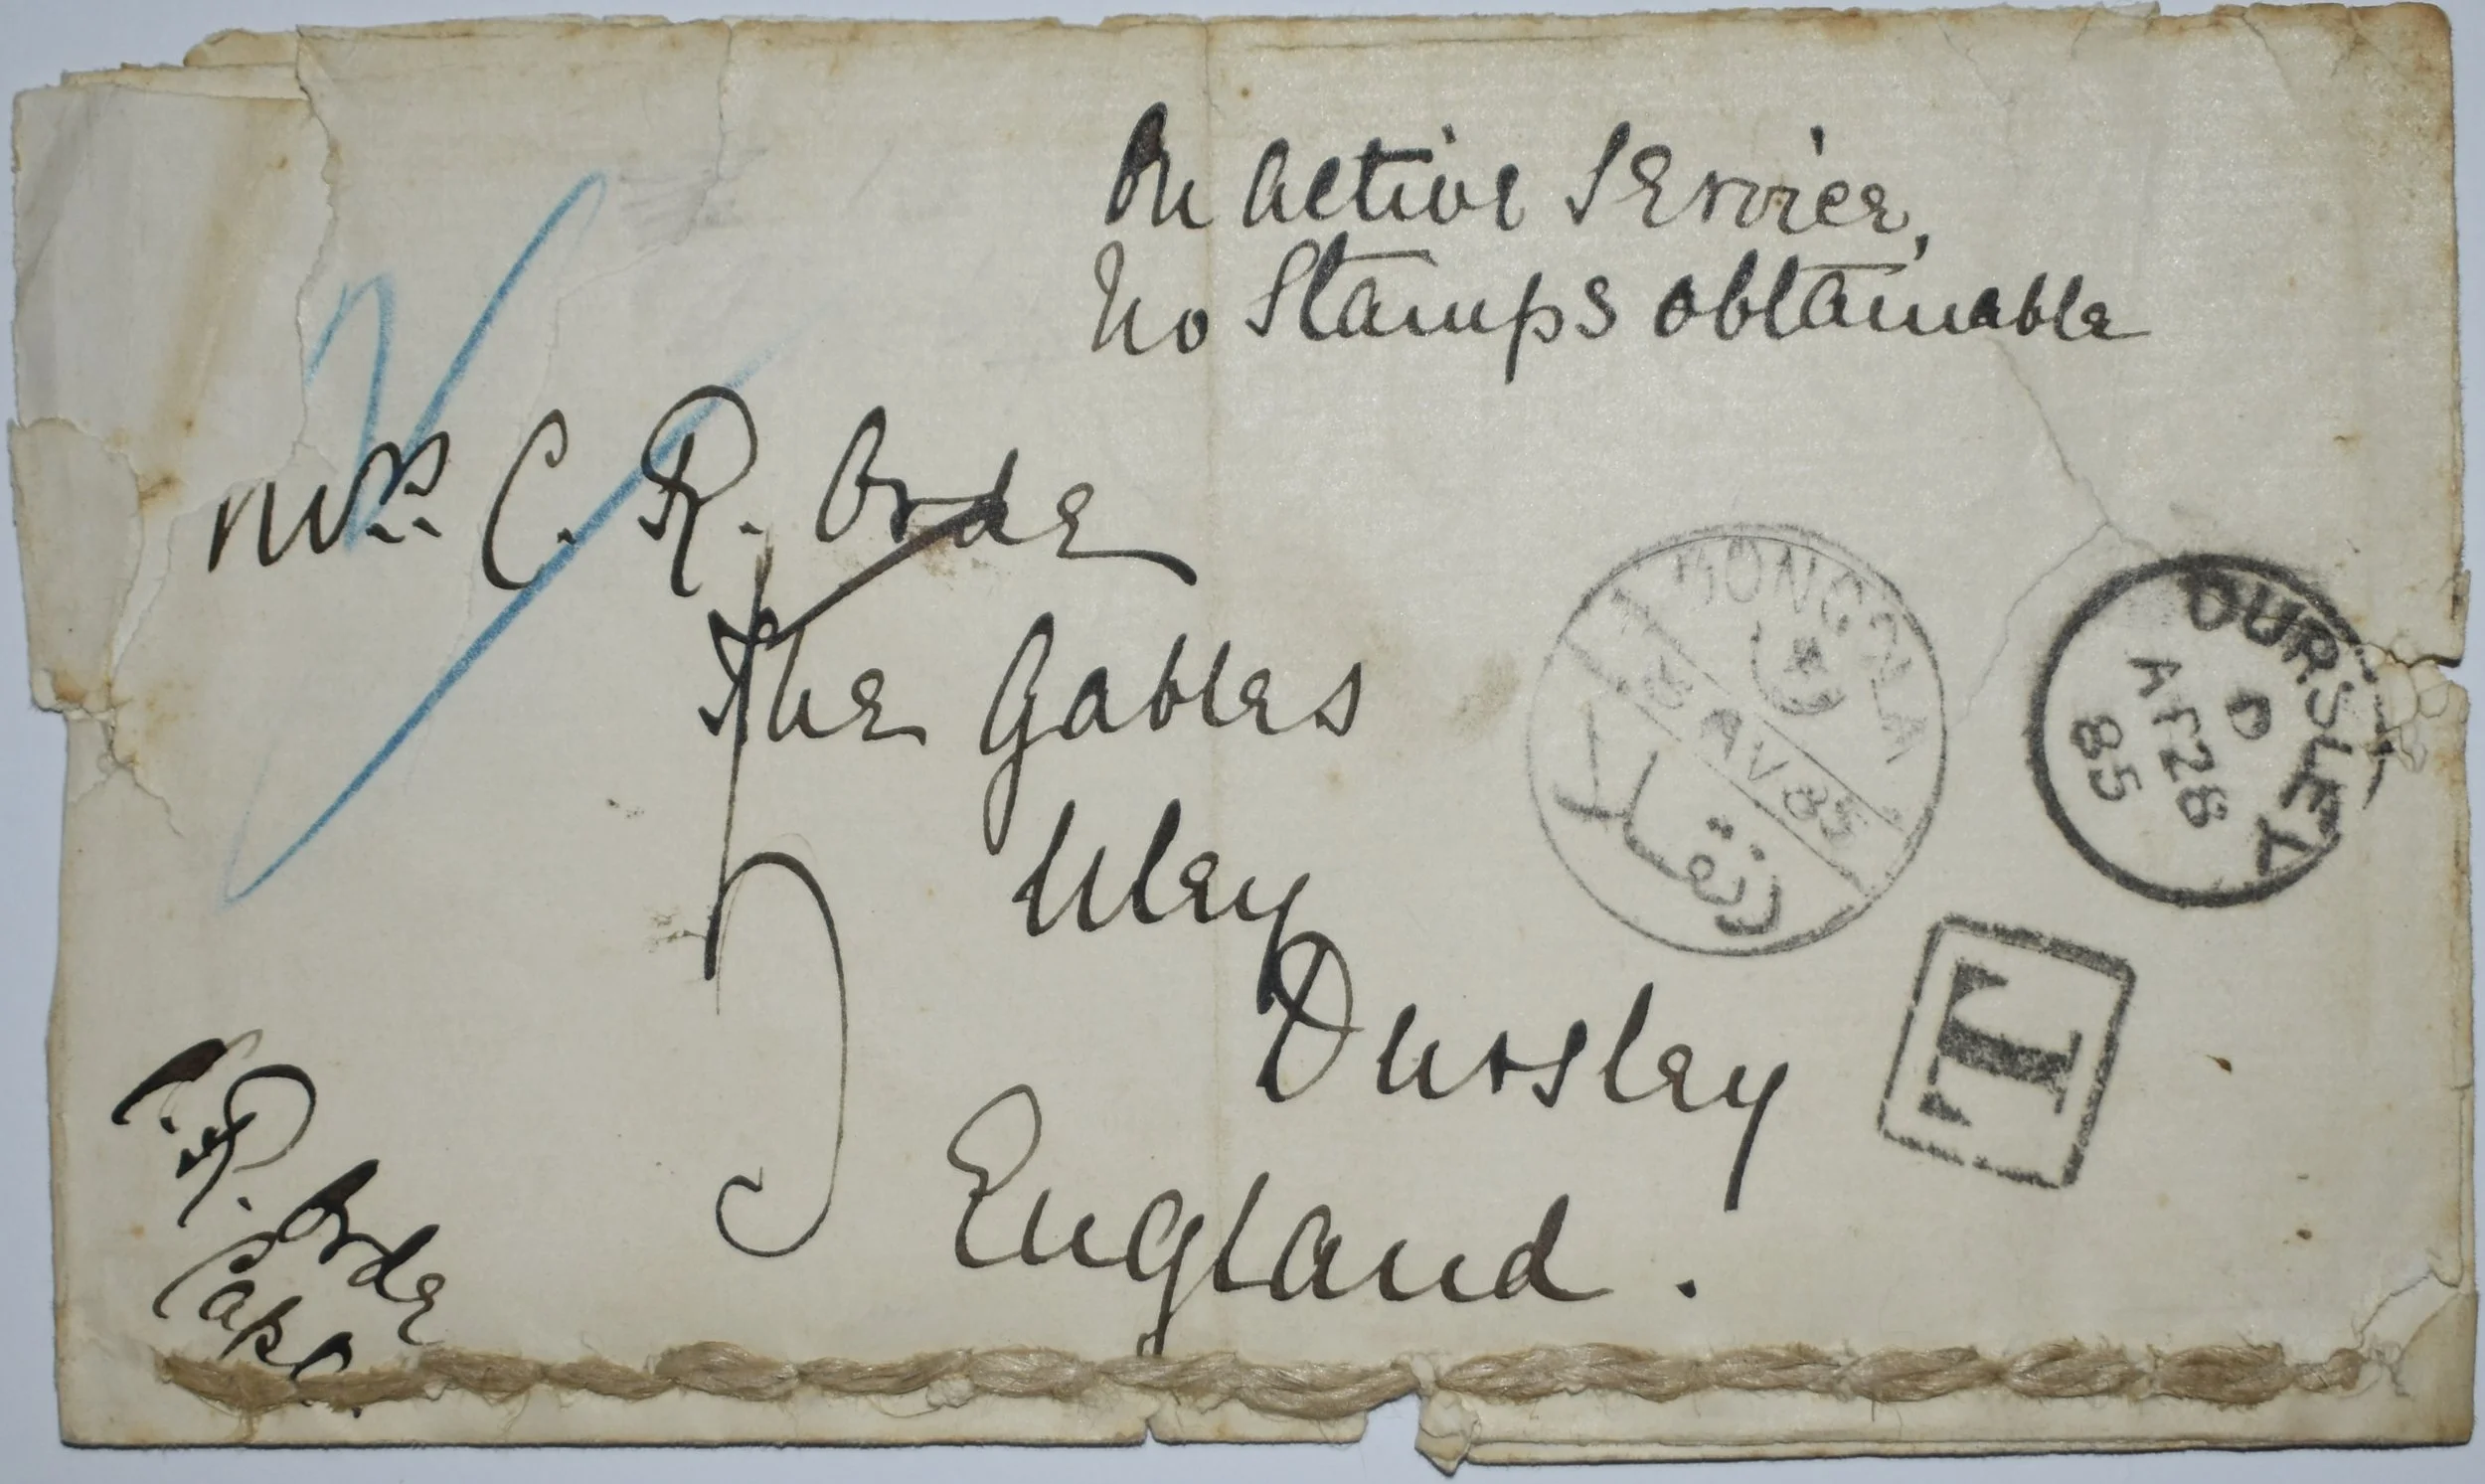 On Active Service,
No Stamps obtainable
Mrs. C. R. Orde
The Gables
Uley
Dursley
England.
C. R. Orde
Capt.
DONGOLA
AV 85
دنقلا
DURSLEY
D
AP 28
85
T